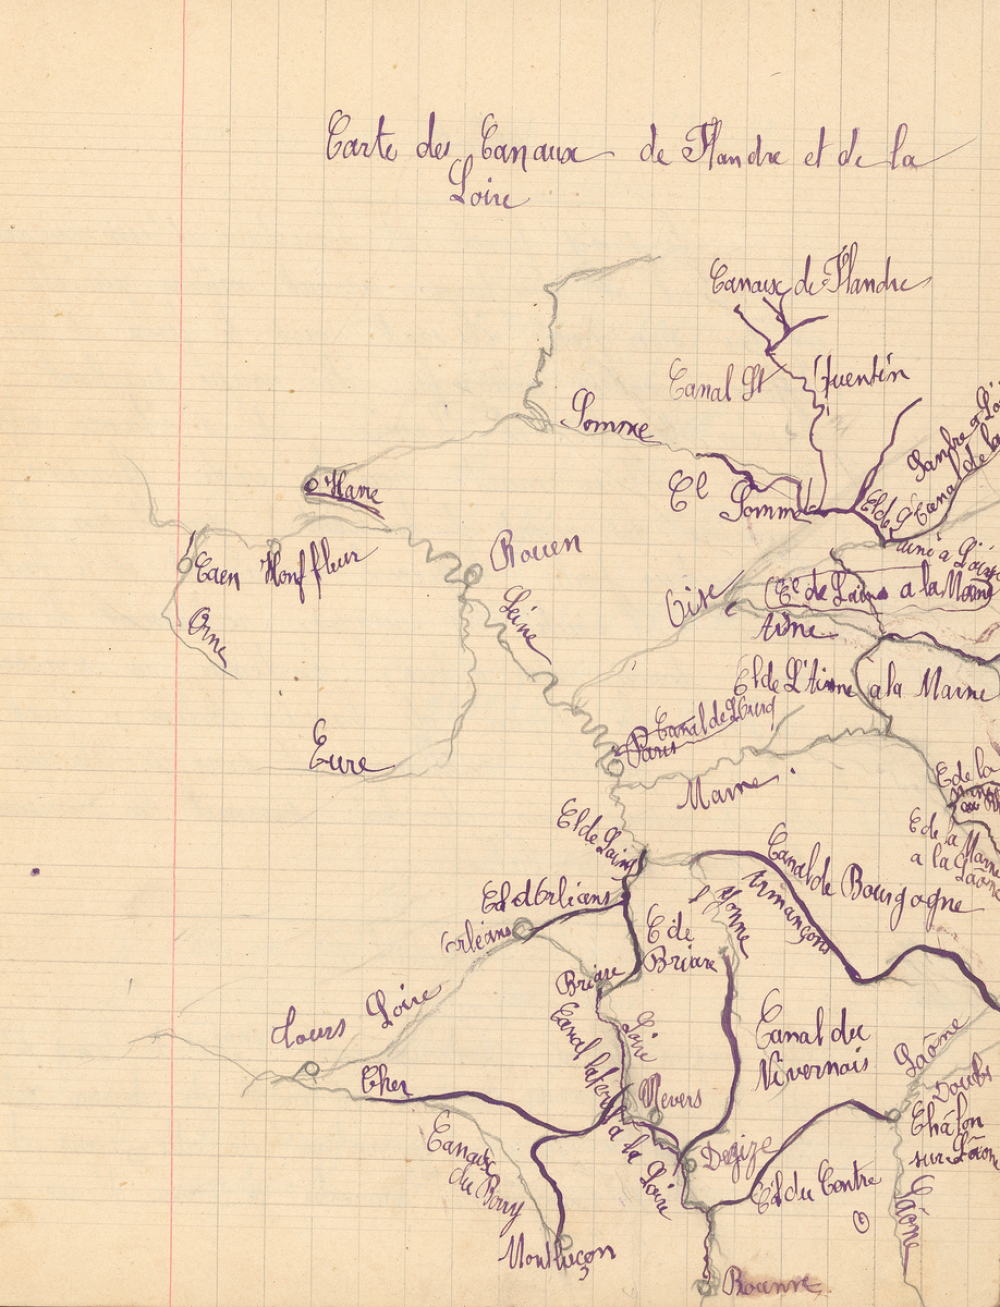 Carte des Canaux de Flandre et de la
Loire
Canaux de Flandre
Canal St Quentin
Somme
Cl Somme
Sambre et
Canal de la
Havre
Rouen
Caen Honfleur
Orne
Seine
Oise
Aisne
Cl de L'Aisne a la Marne
Canal de l'Ourcq
Paris
Eure
Marne
C de la
C de la Marne
a la Saône
Cl de Loing
Canal de Bourgogne
Armançons
Yonne
Cl d'Orléans
Orléans
C de
Briare
Briare
Tours Loire
Loire
Canal lateral à la Loire
Canal du
Nivernais
Saône
Doubs
Cher
Nevers
Châlon
sur Saône
Canaux
du Berry
Decize
Cl du Centre
Saône
Montluçon
Roanne